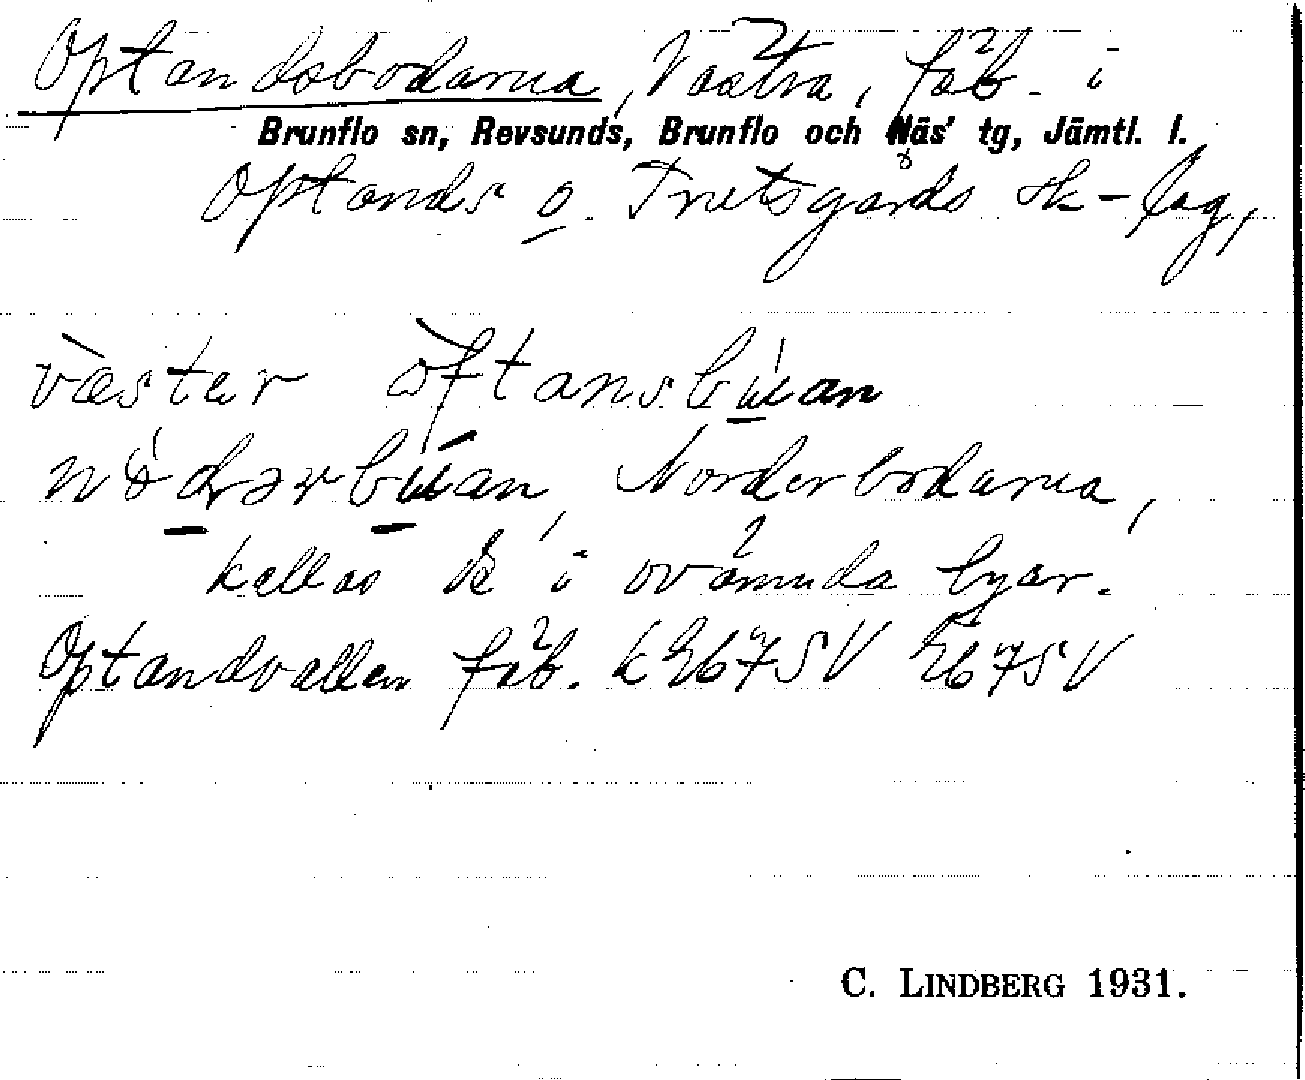 Optandsbodarna, Västra, fäb. i
Brunflo sn, Revsunds, Brunflo och Näs' tg, Jämtl. l.
Optands o. Tretsgårds sk-lag,
väster òftansbúan
nǿdərbúan, Norderbodarna,
kallas i ovannmnda byar.
Optandvallen fäb. k 2675V 2675V
C. LINDBERG 1931.